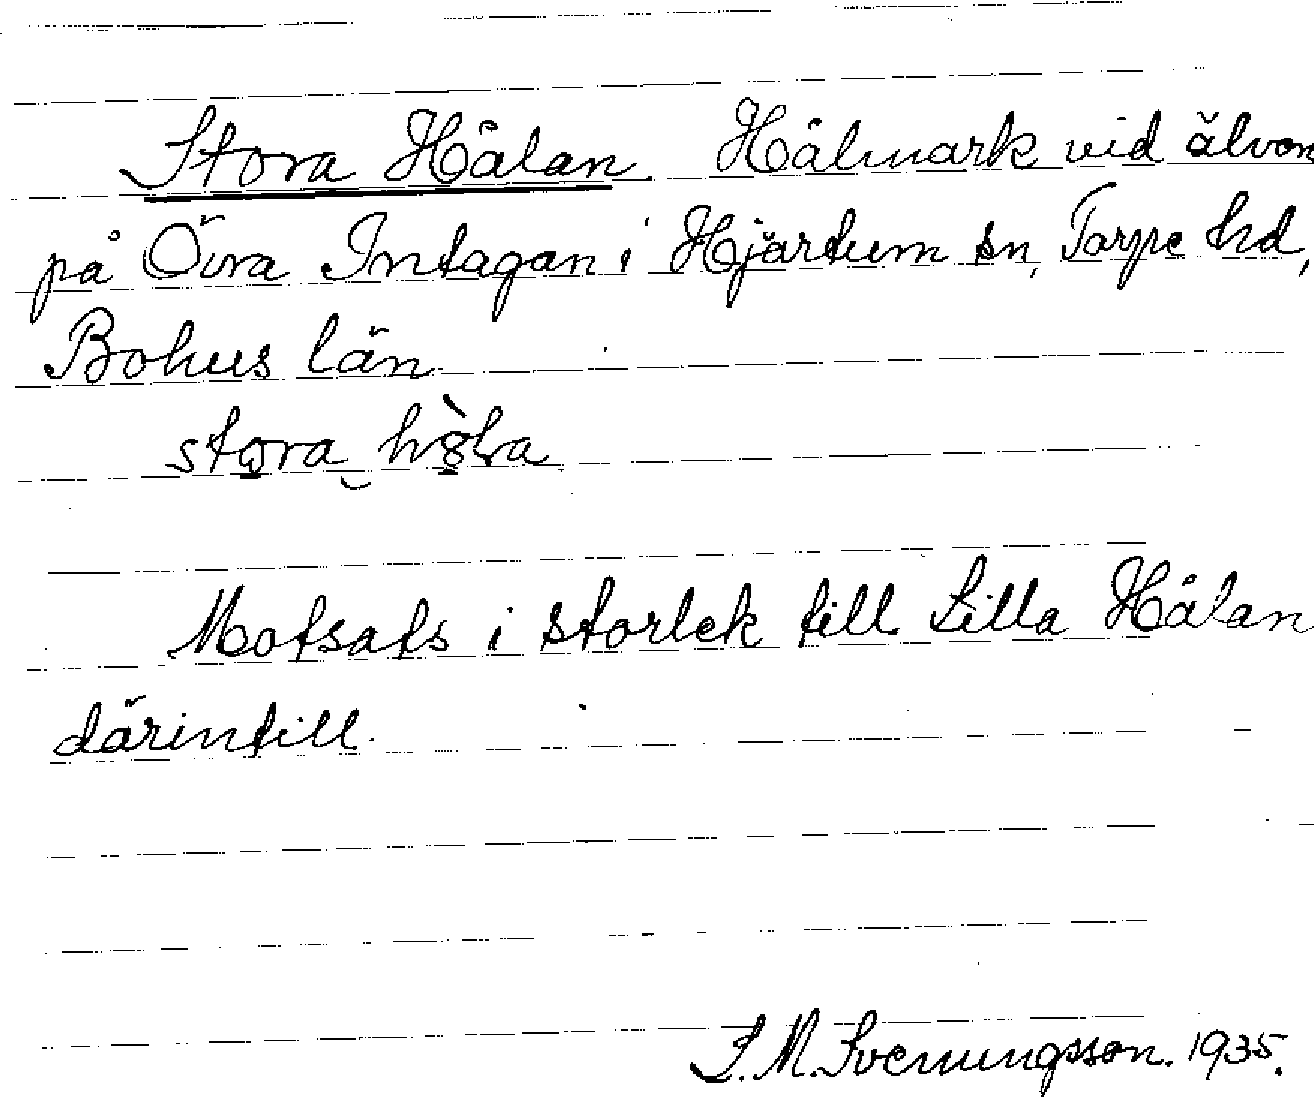 Stora Hålan. Hålmark vid älven
på Övra Intagan i Hjärtum sn, Torpe hd,
Bohus län.
stora
Motsats i storlek till Lilla Hålan
därintill.
S. M. Svenungsson. 1935.